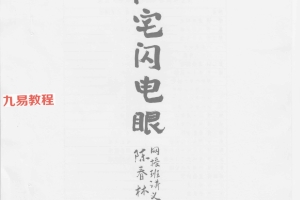 宅闪电眼
网培班讲义
陈春林
九易教程